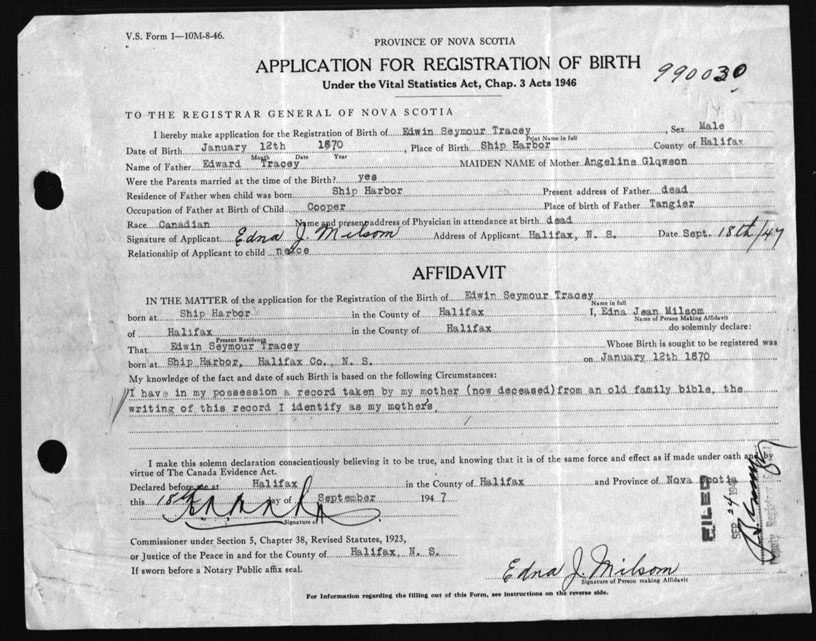 V.S. Form 1—10M-8-46.
PROVINCE OF NOVA SCOTIA
APPLICATION FOR REGISTRATION OF BIRTH
990030
Under the Vital Statistics Act, Chap. 3 Acts 1946
TO THE REGISTRAR GENERAL OF NOVA SCOTIA
I hereby make application for the Registration of Birth of Edwin Seymour Tracey, Sex Male
Print Name in full
Date of Birth January 12th 1870, Place of Birth Ship Harbor County of Halifax
Month Date Year
Name of Father Edward Tracey MAIDEN NAME of Mother Angeline Glqwson
Were the Parents married at the time of the Birth? yes
Residence of Father when child was born Ship Harbor Present address of Father dead
Occupation of Father at Birth of Child Cooper Place of birth of Father Tangier
Race Canadian Name and present address of Physician in attendance at birth dead
Signature of Applicant Edna J. Milsom Address of Applicant Halifax, N. S. Date Sept. 18th/47
Relationship of Applicant to child neice
AFFIDAVIT
IN THE MATTER of the application for the Registration of the Birth of Edwin Seymour Tracey
Name in full
born at Ship Harbor in the County of Halifax I, Edna Jean Milsom
Name of Person Making Affidavit
of Halifax in the County of Halifax do solemnly declare:
Present Residence
That Edwin Seymour Tracey Whose Birth is sought to be registered was
born at Ship Harbor, Halifax Co., N. S. on January 12th 1870
My knowledge of the fact and date of such Birth is based on the following Circumstances:
I have in my possession a record taken by my mother (now deceased) from an old family bible, the
writing of this record I identify as my mother's.
I make this solemn declaration conscientiously believing it to be true, and knowing that it is of the same force and effect as if made under oath and by
virtue of The Canada Evidence Act.
Declared before me at Halifax in the County of Halifax and Province of Nova Scotia
this 18th day of September 1947
Signature of
FILED
SEP 24 194
Commissioner under Section 5, Chapter 38, Revised Statutes, 1923,
or Justice of the Peace in and for the County of Halifax, N. S.
If sworn before a Notary Public affix seal.
Edna J. Milsom
Signature of Person making Affidavit
For Information regarding the filling out of this Form, see instructions on the reverse side.